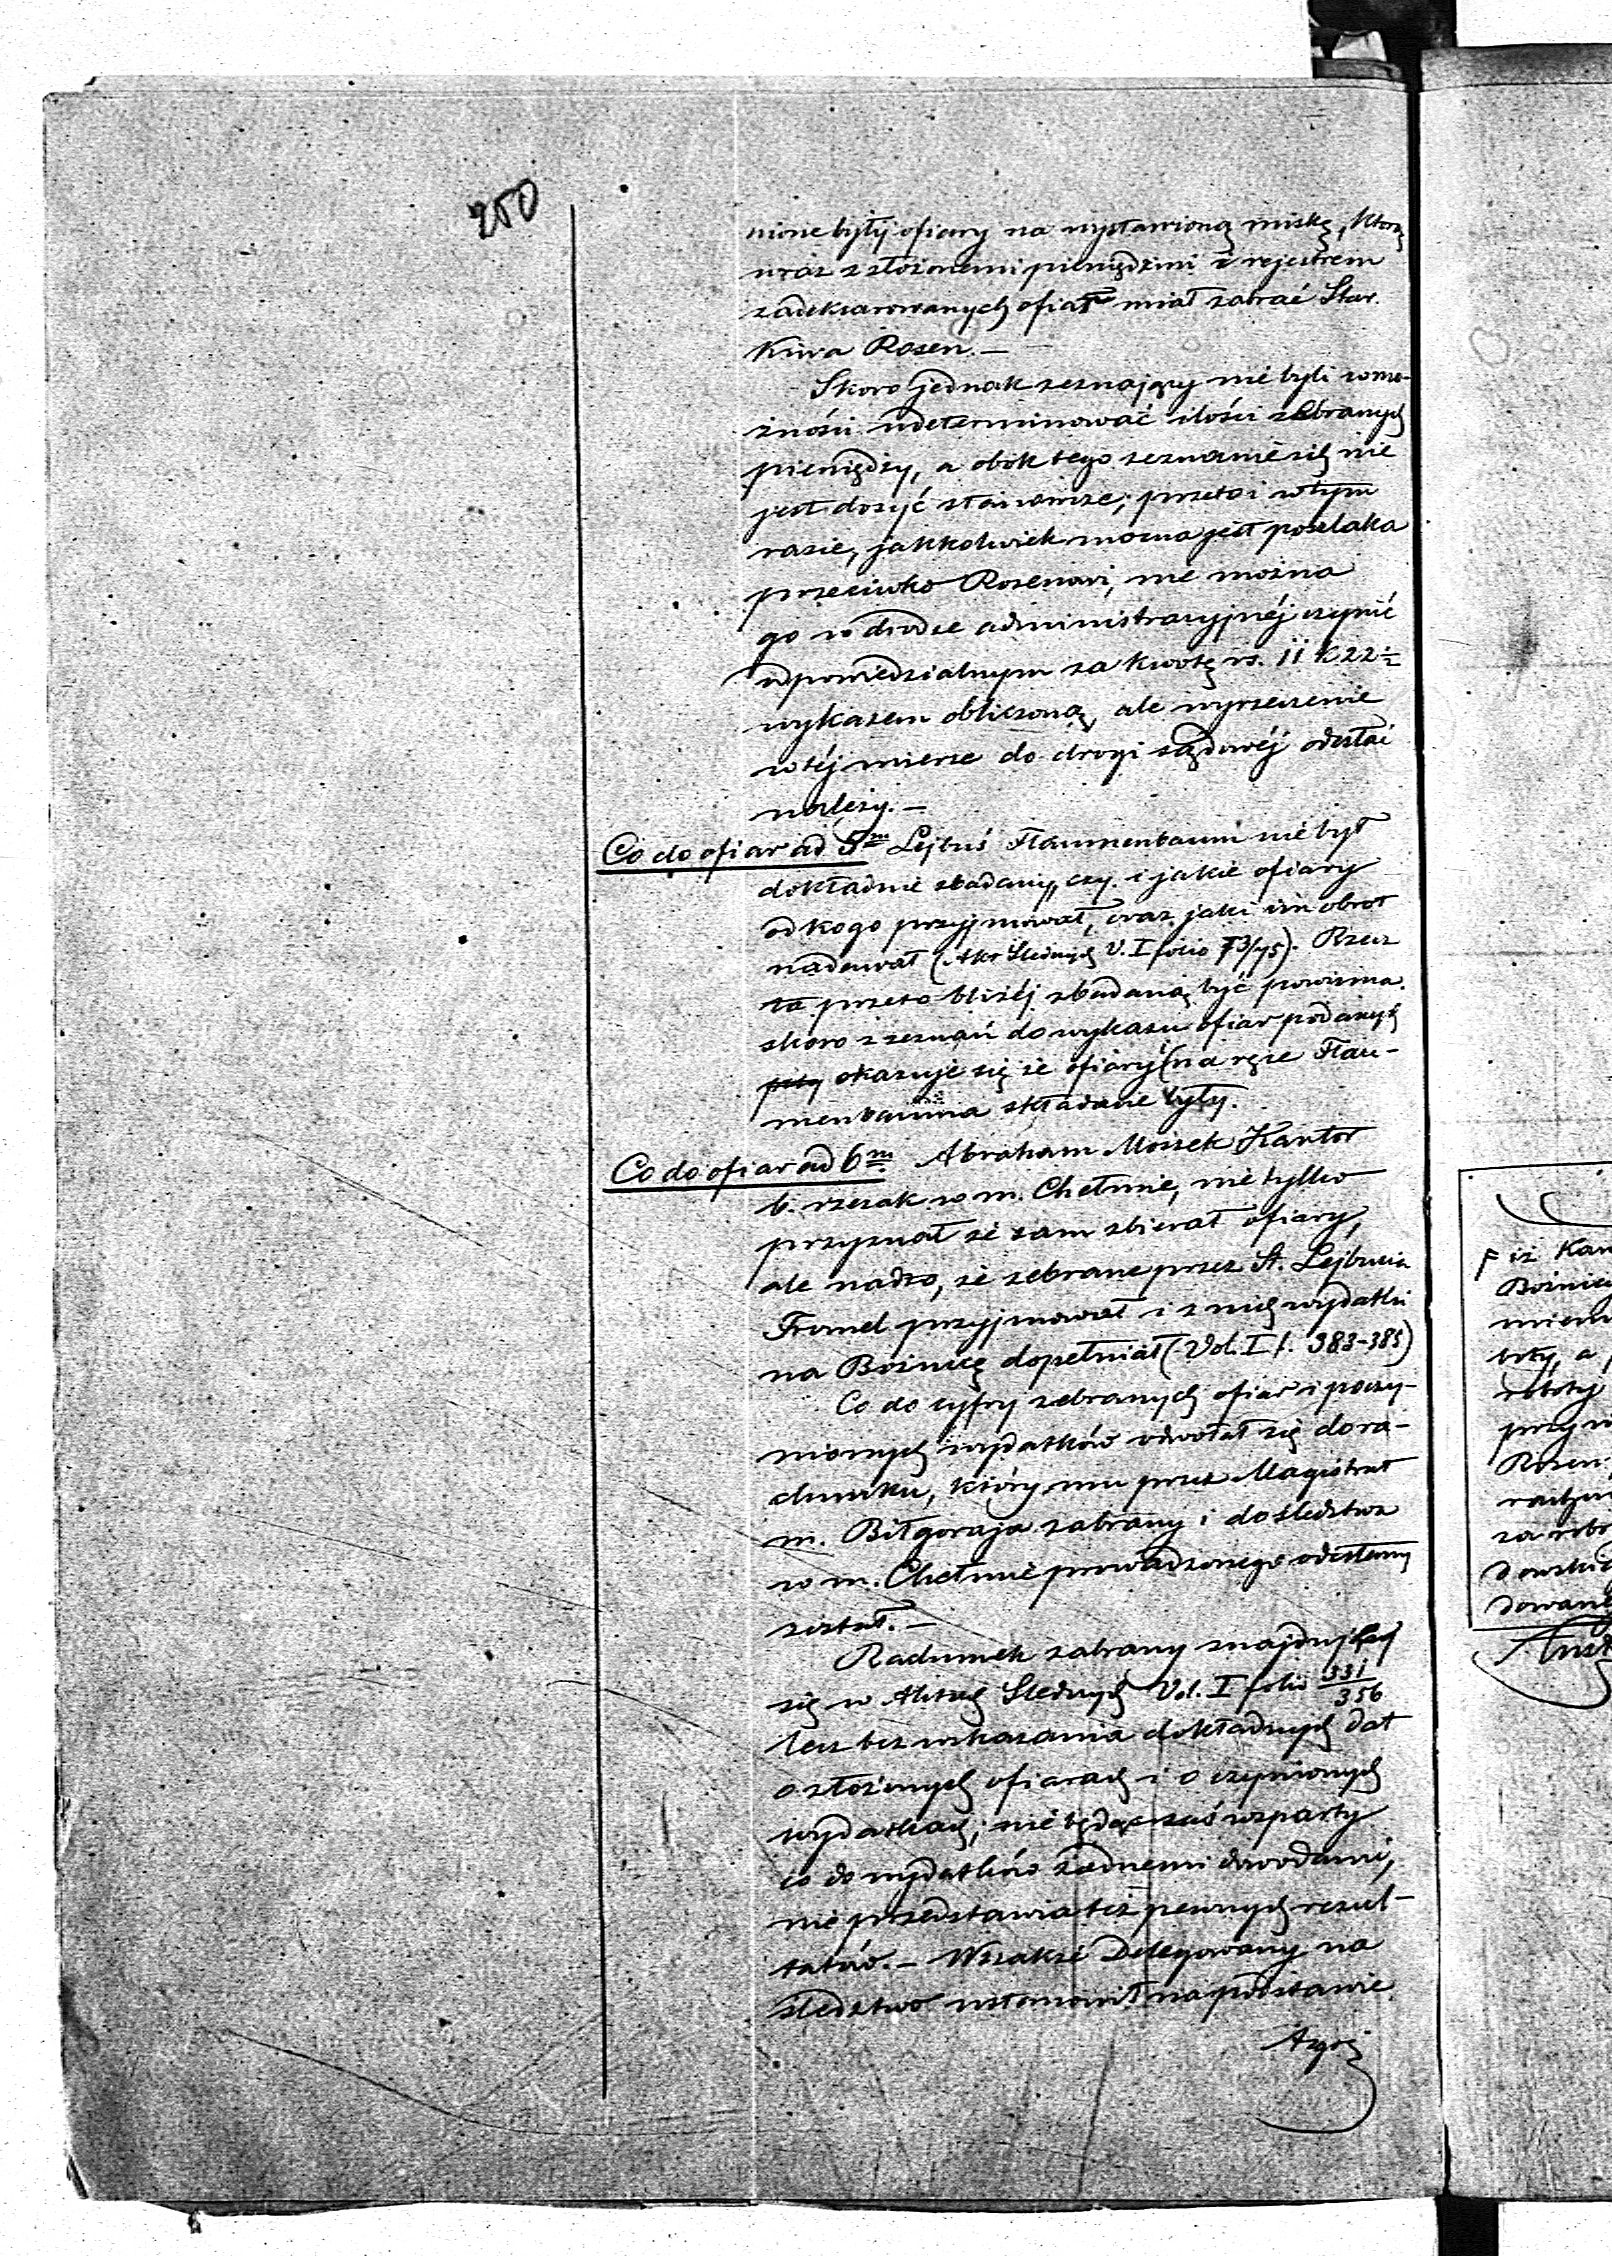 250
nione były ofiary na wystawioną miskę, którą
wraz z złożonemi pieniędzmi i rejestrem
zadeklarowanych ofiar miał zabrać Star.
Kiwa Rosen. —
Skoro jednak zeznający nie byli w mo-
żności udeterminować ilości zebranych
pieniędzy, a obok tego zeznanie ich nie
jest dosyć stanowcze; przeto i w tym
razie, jakkolwiek mocna jest poszlaka
przeciwko Rosenowi, nie można
go w drodze administracyjnéj czynić
odpowiedzialnym za kwotę rs. 11 k 22½
wykazem obliczoną, ale wyrzeczenie
w téj mierze do drogi sądowéj odesłać
należy. —
Co do ofiar ad 5m Lejbuś Flaumenbaum nie był
dokładnie zbadany, czy i jakie ofiary
od kogo przyjmował, oraz jaki im obrot
nadawał (Akt Śledczych V. I folio 73/75). Rzecz
ta przeto bliżéj zbadaną być powinna
skoro z zeznań do wykazu ofiar podanych
okazuje się że ofiary na ręce Flau-
menbauma składane były.
Co do ofiar ad 6m. Abraham Moszek Kantor
b. rzezak w m. Chełmie, nie tylko
przyznał że sam zbierał ofiary,
ale nadto, że zebrane przez St. Lejbusia
Fromel przyjmował i z nich wydatki
na Bożnicę dopełniał (Vol. I f. 383-385)
Co do cyfry zebranych ofiar i poczy-
nionych wydatków odwołał się do ra-
chunku, który mu przez Magistrat
m. Biłgoraja zabrany i do śledztwa
w m. Chełmie prowadzonego odesłany
został. —
Rachunek zabrany znajduje
się w Aktach Śledczych Vol. I folio 331/356
lecz bez wskazania dokładnych dat
o złożonych ofiarach i o czynionych
wydatkach; nie będąc zaś wsparty
co do wydatków żadnemi dowodami,
nie przedstawia też pewnych rezul-
tatów. — Wszakże Delegowany na
śledztwo ustanowił na podstawie
iż Kan
Bożnic
rotoży
przy
Rosen
za robo
dowan